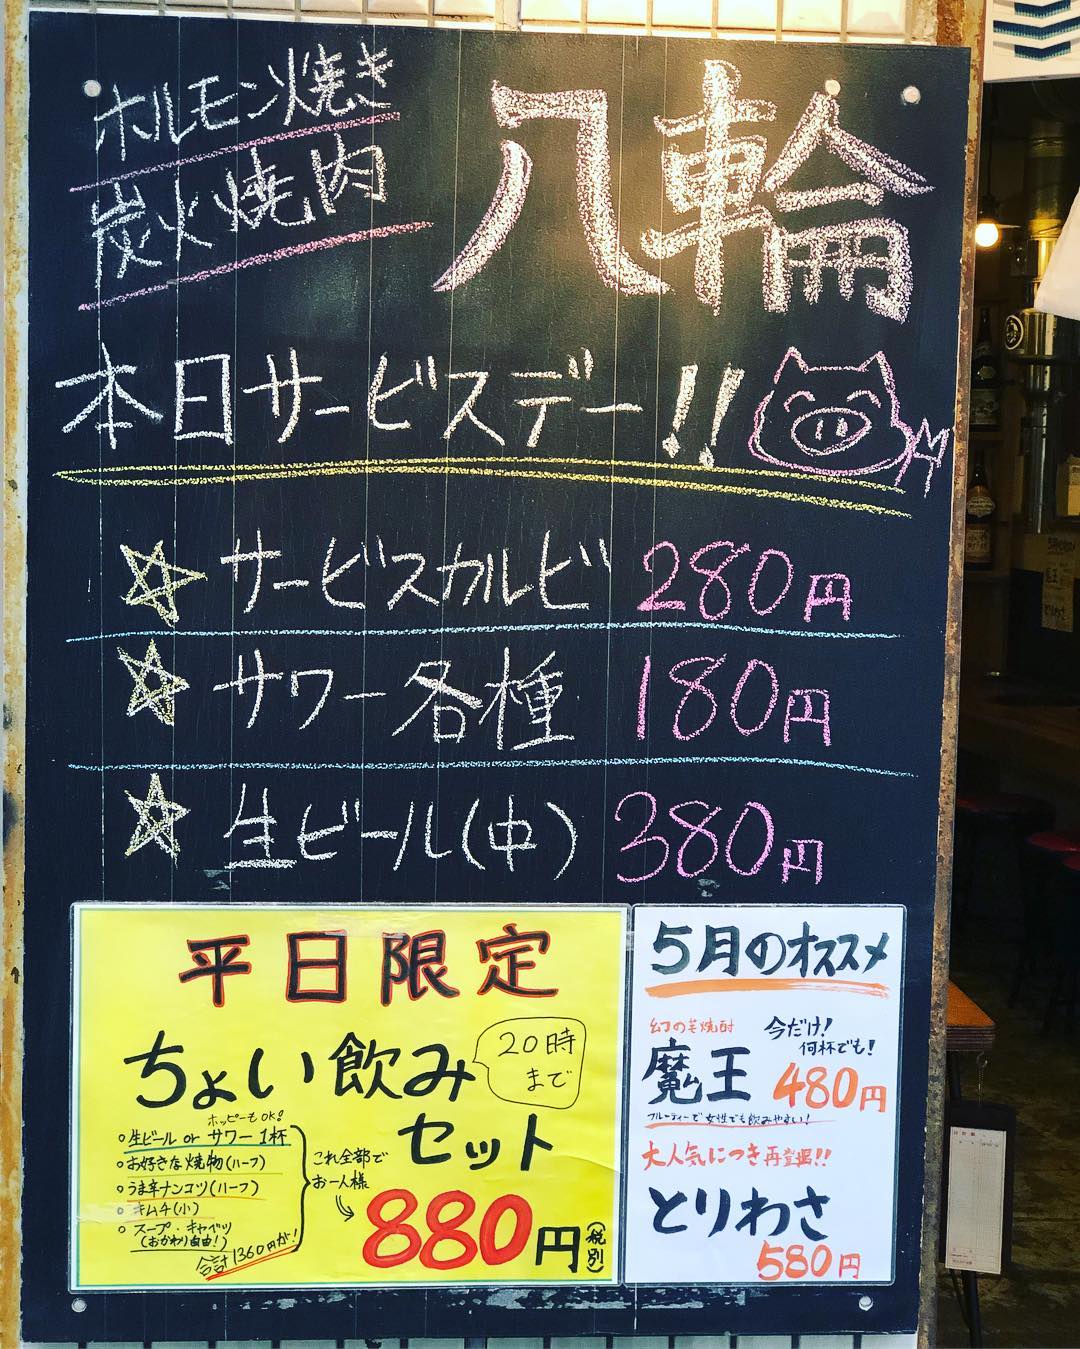 ホルモン焼き
炭火焼肉
八輪
本日サービスデー!!
サービスカルビ 280円
サワー各種 180円
生ビール(中) 380円
平日限定
ちょい飲み
セット
20時
まで
ホッピーもOK!
○生ビール or サワー 1杯
○お好きな焼物(ハーフ)
○うま辛ナンコツ(ハーフ)
○キムチ(小)
○スープ・キャベツ
(おかわり自由!)
合計1360円が!
これ全部で
お一人様
880円(税別)
5月のオススメ
幻の芋焼酎
魔王
今だけ!
何杯でも!
480円
フルーティーで女性でも飲みやすい!
大人気につき再登場!!
とりわさ
580円
魔王
とりわさ